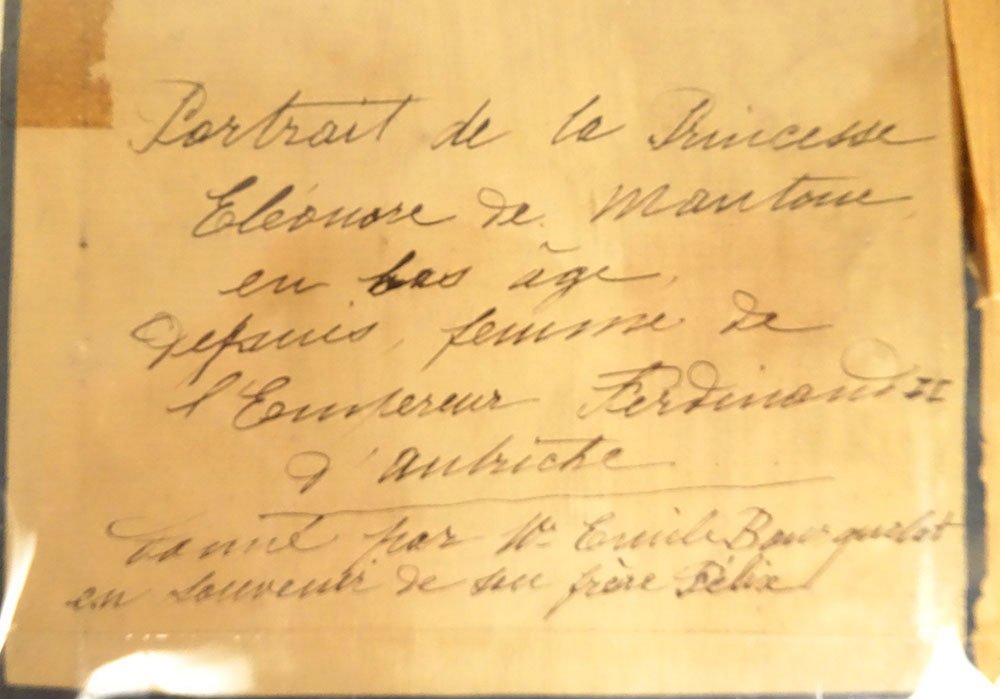 Portrait de la Princesse
Eléonore de Mantoue
en bas âge,
depuis, femme de
l'Empereur Ferdinand II
d'Autriche
donné par Mr Emile Bourquelot
en souvenir de son frère Félix